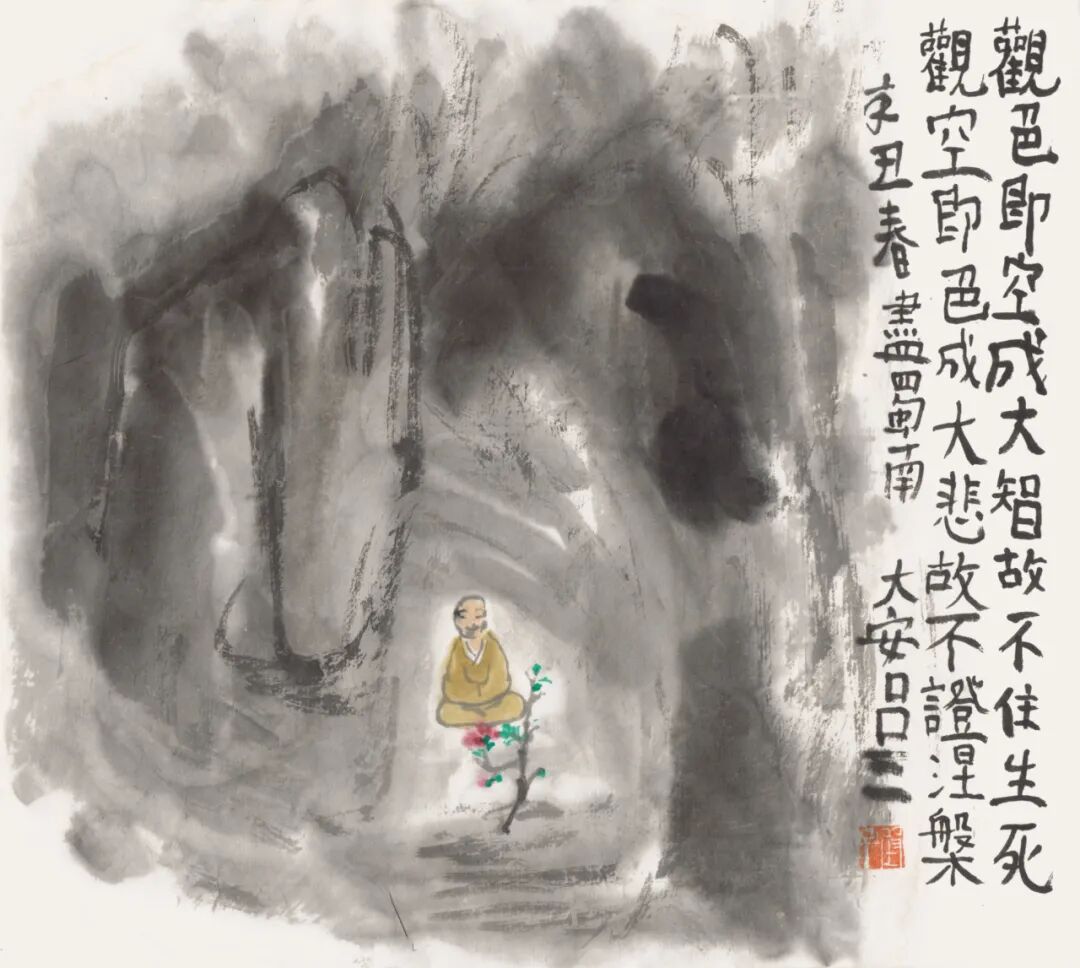 觀色即空成大智故不住生死
觀空即色成大悲故不證涅槃
辛丑春盡蜀南 大安吕三